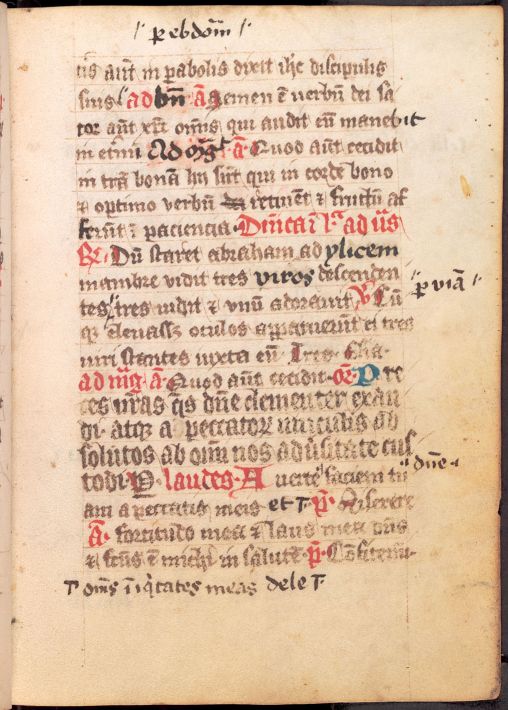 p ebdom̄
tis aūt in parabolis dixit ihc̄ discipulis
suis ad bn̄ a Semen ē verbū dei sa
tor aūt xp̄c omīs qui audit eū manebit
in etnū Ad mḡt a Quod aūt cecidit
in trā bonā hii sūt qui in corde bono
⁊ optimo verbū retinent ⁊ fructū af
ferūt ī paciencia Dn̄ica ī l a ad vs̄
R Dū staret abraham ad ylicem
mambre vidit tres viros descenden
tes tres uidit ⁊ vnū adorauit V Cū
p viā
q eleuass; oculos apparuerūt ei tres
uiri stantes iuxta eū Tres Glia
ad mḡ a Quod aūt cecidit or̄ Pre
ces nr̄as qs̄ dn̄e clementer exau
di atq a peccator uinculis ab
solutos ab om̄i nos aduersitate cus
dn̄e
todi P laudes A uerte faciem tu
am a peccatis meis et T p̄ Miserere
a fortitudo mea ⁊ laus mea dn̄s
⁊ fcūs ē michi in salutē p̄ Confitemi
T om̄s īiqitates meas dele T